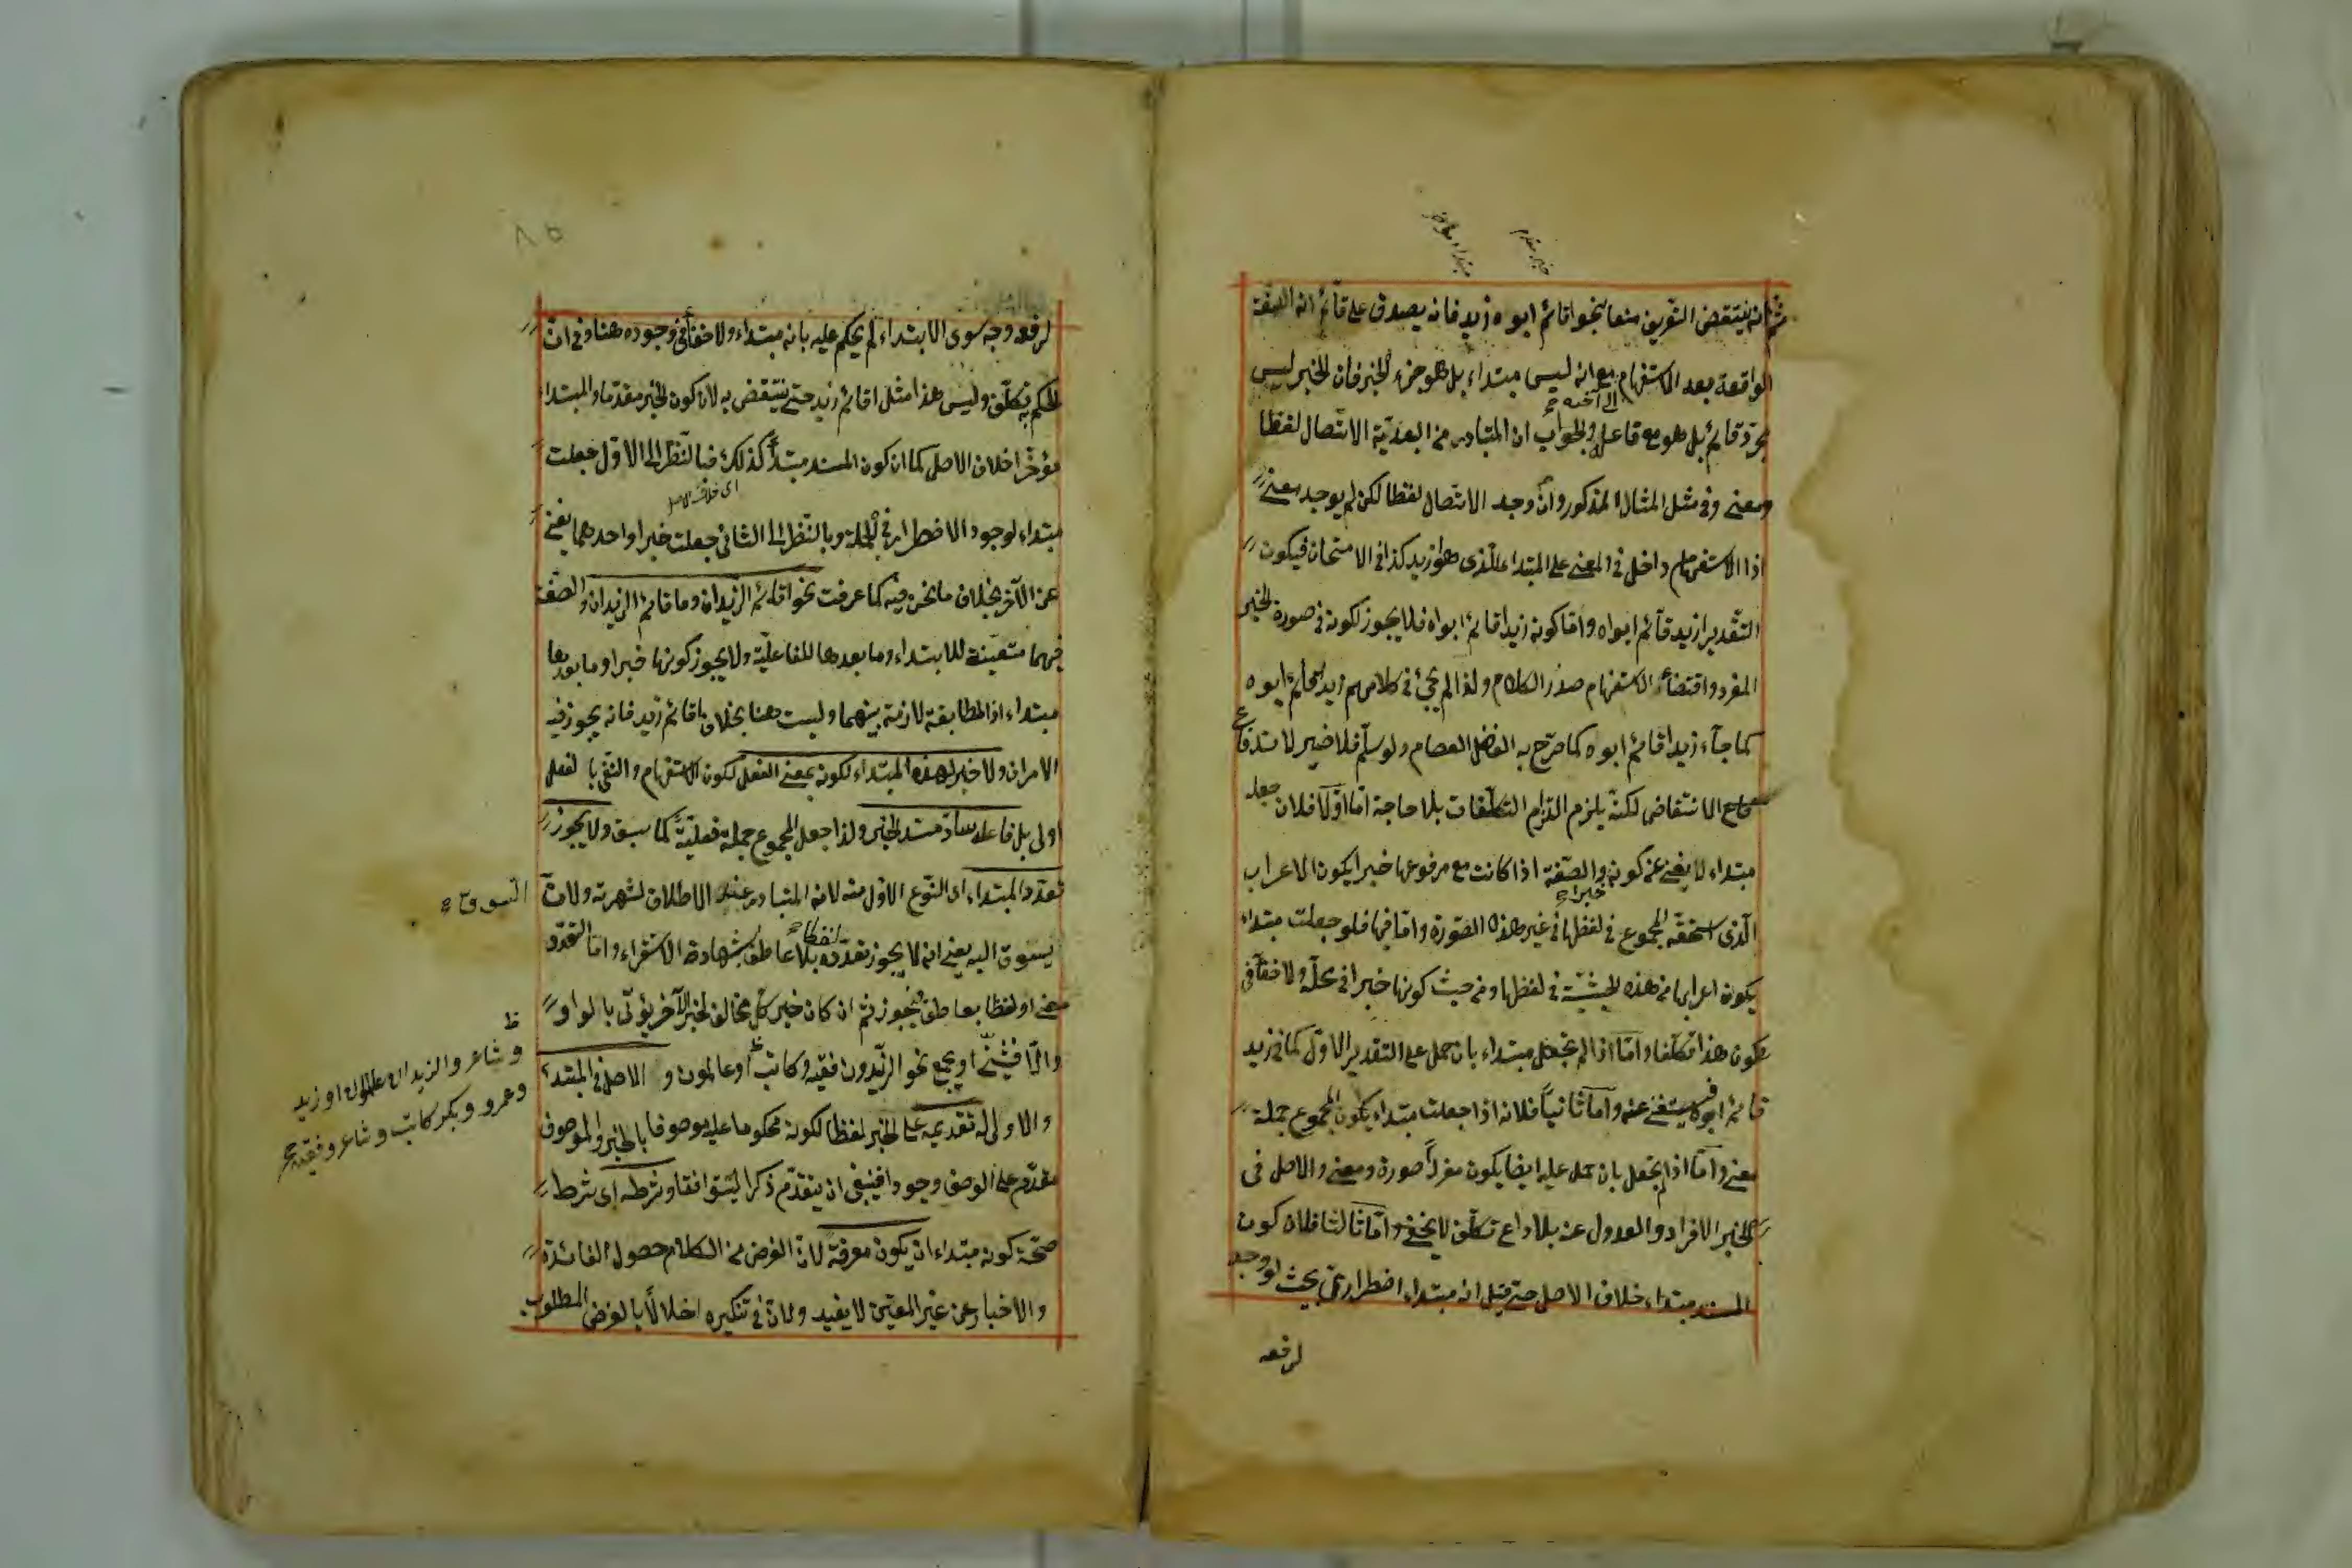 خبر مقدم
مبتداء مؤخر
ثم انه ينتقض التعريف منعا بنحو اقائم ابوه زيد فانه يصدق على قائم انه الصفة
الواقعة بعد الاستفهام مع انه ليس مبتداء بل هو جزء الخبر فان الخبر ليس
مجرد قائم بل هو مع فاعله والجواب ان المتبادر من البعدية الاتصال لفظا
ومعنى وفي مثل المثال المذكور وان وجد الاتصال لفظا لكن لم يوجد معنى
اذ الاستفهام داخل في المعنى على المبتداء الذي هو زيد كذا في الامتحان فيكون
التقدير ازيد قائم ابواه واما كونه زيد اقائم ابواه فلا يجوز لكونه في صورة الخبر
المفرد واقتضاء الاستفهام صدر الكلام ولذا لم يجئ في كلامهم زيد اقائم ابوه
كما جاء زيد اقائم ابوه كما صرح به الفاضل العصام ولو سلم فلا ضير لاندفاع
الانتقاض لكنه يلزم التزام التكلفات بلا حاجة اما اولا فلان جعله
مبتداء لا يغني عن كونه خبرا والصفة اذا كانت مع مرفوعها خبرا يكون الاعراب
الذي استحقه المجموع في لفظها في غير هذه الصورة واما فيها فلو جعلت مبتداء
يكون اعرابها من هذه الحيثية في لفظها ومن حيث كونها خبرا في محله ولا خفاء في
كون هذا تكلفا واما اذا لم تجعل مبتداء بان حمل على التقدير الاول كما في زيد
قائم ابوه فيستغني عنه واما ثانيا فلانه اذا جعلت مبتداء يكون المجموع جملة
معنى واما اذا لم يجعل بان حمل عليه ايضا يكون مفردا صورة ومعنى والاصل في
الخبر الافراد والعدول عنه بلا داع تكلف لا يخفى واما ثالثا فلان كون
المسند مبتداء خلاف الاصل حتى قيل انه مبتداء اضطراري بحيث لو وجد
لرفعه
لرفعه وجه سوى الابتداء لم يحكم عليه بانه مبتداء ولا خفاء في وجوده هنا وفي ان
الحكم به تكلف وليس هذا مثل اقائم زيد حتى ينتقض به لان كون الخبر مقدما والمبتداء
مؤخرا خلاف الاصل كما ان كون المسند مبتدأ كذلك فبالنظر الى الاول جعلت
اى خلاف الاصل
مبتداء لوجود الاضطرار في الجملة وبالنظر الى الثاني جعلت خبرا واحدهما يغني
عن الآخر بخلاف ما نحن فيه كما عرفت نحو اقائم الزيدان وما قائم الزيدان والصفة
فيهما متعينة للابتداء وما بعدها للفاعلية ولا يجوز كونها خبرا وما بعدها
مبتداء اذ المطابقة لازمة بينهما وليست هنا بخلاف ما قائم زيد فانه يجوز فيه
الامران ولا خبر لهذا المبتداء لكونه بمعنى الفعل لكون الاستفهام والنفي بالفعل
اولى بل فاعله ساد مسد الخبر ولذا جعل المجموع جملة فعلية كما سبق ولا يجوز
تعدد المبتداء اى النوع الاول منه لانه المتبادر عند الاطلاق لشهرته ولان
السوق
يسوق اليه يعني انه لا يجوز تعدده لفظا بلا عاطف بشهادة الاستقراء واما التعدد
معنى او لفظا بعاطف فيجوز ثم ان كان خبر كل مخالف لخبر الآخر يؤتى بالواو
والا فيثنى او يجمع نحو الزيدون فقيه وكاتب او عالمون والاصل في المبتداء
وشاعر والزيدان عالمان او زيد
وعمرو وبكر كاتب وشاعر وفقيه
والاولى له تقديمه على الخبر لفظا لكونه محكوما عليه وموصوفا بالخبر والموصوف
مقدم على الوصف وجودا فينبغي ان يتقدم ذكرا ليتوافقا وشرطه اى شرط
صحة كونه مبتداء ان يكون معرفة لان الغرض من الكلام حصول الفائدة
والاخبار عن غير المعين لا يفيد ولان في تنكيره اخلالا بالغرض المطلوب